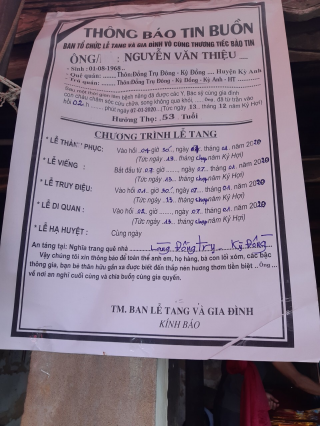 THÔNG BÁO TIN BUỒN
BAN TỔ CHỨC LỄ TANG VÀ GIA ĐÌNH VÔ CÙNG THƯƠNG TIẾC BÁO TIN
ÔNG/ : NGUYỄN VĂN THIỆU
- Sinh : 01-08-1968
- Quê quán : Thôn Đông Trụ Đông - Kỳ Đồng Huyện Kỳ Anh
- Trú quán : Thôn Đông Trụ Đông - Kỳ Đồng - Kỳ Anh - HT
Sau một thời gian lâm bệnh nặng đã được các Y, Bác sỹ cùng gia đình
con cháu chăm sóc cứu chữa, song không qua khỏi. Ông đã từ trần vào
hồi 02 h phút ngày 07-01-2020 (Tức ngày 13 tháng 12 năm Kỷ Hợi)
Hưởng Thọ: 53 Tuổi
CHƯƠNG TRÌNH LỄ TANG
* LỄ THÀNH PHỤC: Vào hồi 04 giờ 30' ngày 07 tháng 01 năm 2020
(Tức ngày 13 tháng chạp năm Kỷ Hợi)
* LỄ VIẾNG: Bắt đầu từ 07 giờ ngày 07 tháng 01 năm 2020
(Tức ngày 13 tháng chạp năm Kỷ Hợi)
* LỄ TRUY ĐIỆU: Vào hồi 01 giờ 30 ngày 07 tháng 01 năm 2020
(Tức ngày 13 tháng chạp năm Kỷ Hợi)
* LỄ DI QUAN: Vào hồi 02 giờ ngày 07 tháng 01 năm 2020
(Tức ngày 13 tháng chạp năm Kỷ Hợi)
* LỄ HẠ HUYỆT: Cùng ngày
An táng tại: Nghĩa trang quê nhà Làng Đồng Trụ Kỳ Đồng
Vậy chúng tôi xin thông báo để toàn thể anh em, họ hàng, bà con lối xóm, các bậc
thông gia, bạn bè thân hữu gần xa được biết đến thắp nén hương thơm tiễn biệt Ông
về nơi an nghỉ cuối cùng và chia buồn cùng gia quyến.
TM. BAN LỄ TANG VÀ GIA ĐÌNH
KÍNH BÁO